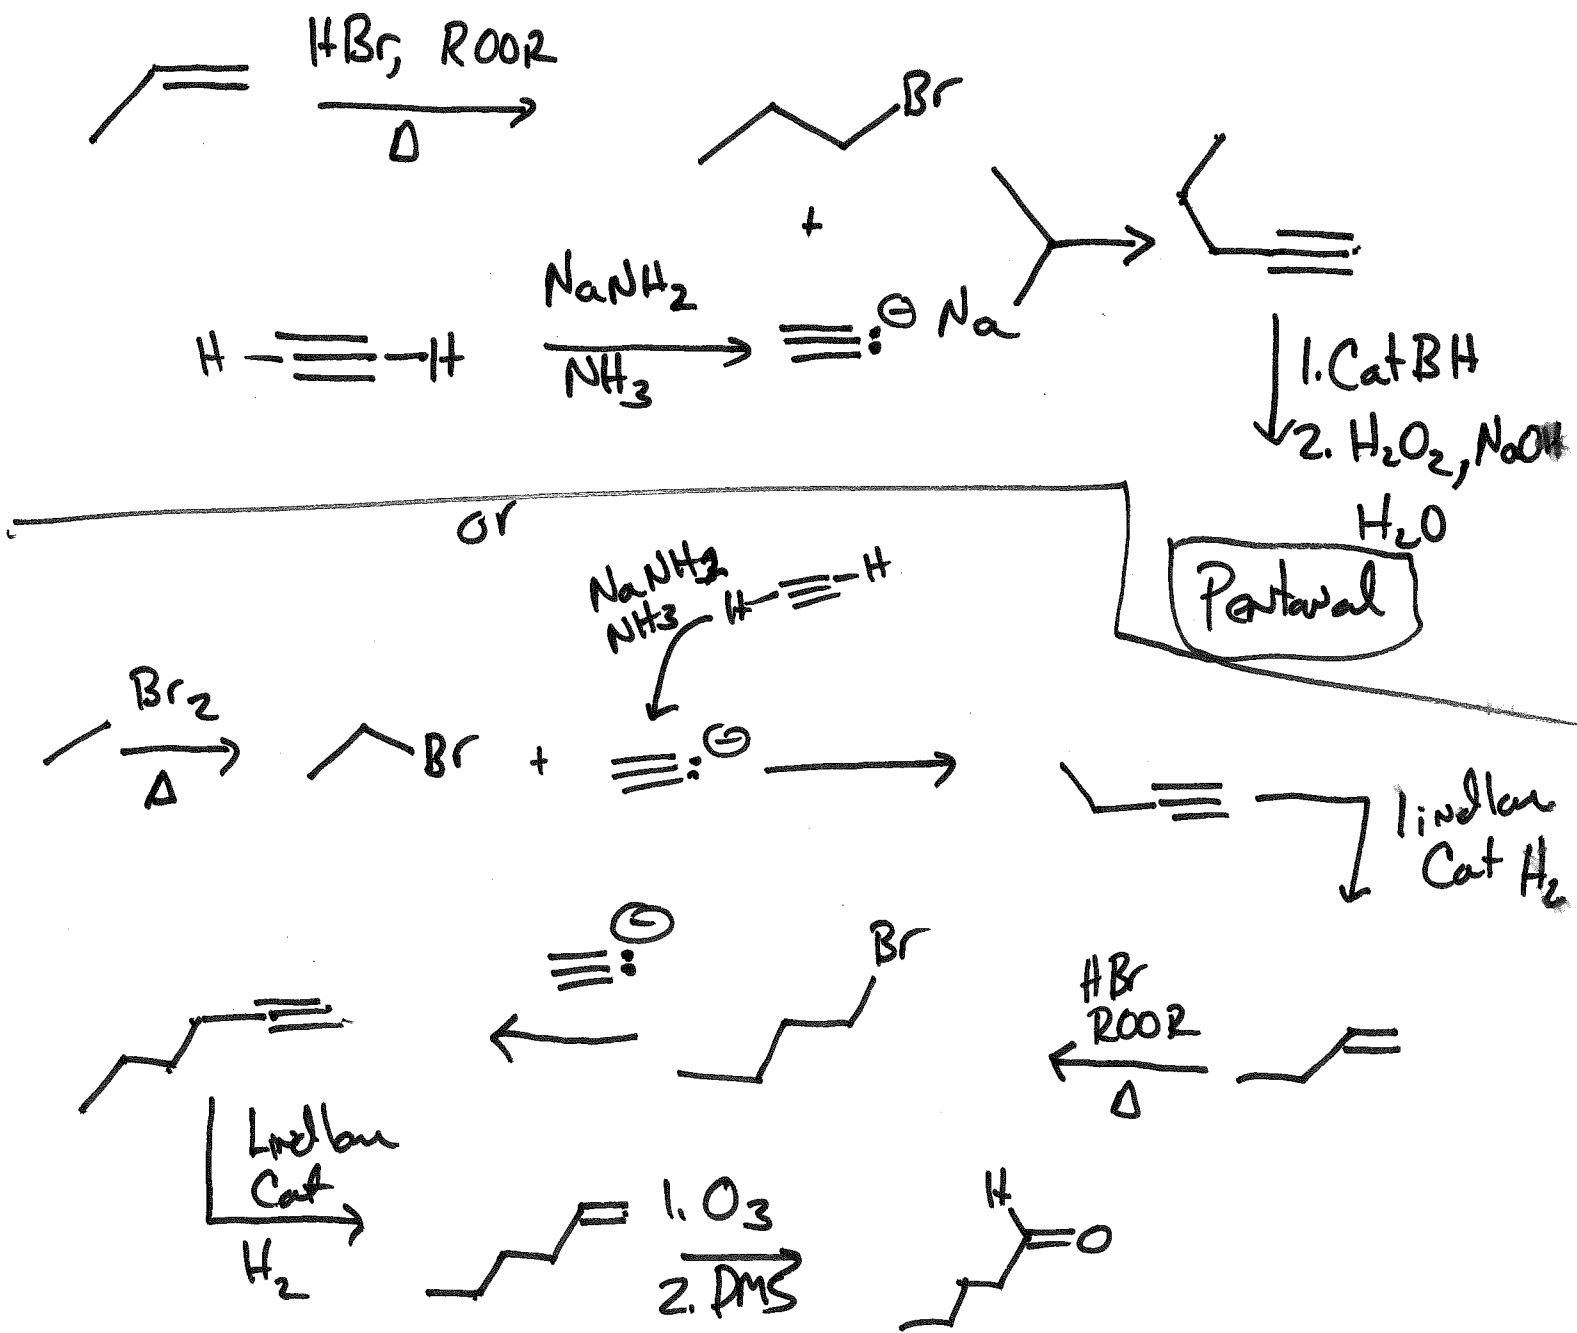 HBr, ROOR
Δ
Br
+
NaNH2
H
H
NH3
⊖
Na
1. CatBH
2. H2O2, NaOH
H2O
Pentanal
or
NaNH2
NH3
H
H
Br2
Δ
Br
+
⊖
lindlar
Cat H2
HBr
ROOR
Δ
Br
⊖
Lindlar
Cat
H2
1. O3
2. DMS
H
O